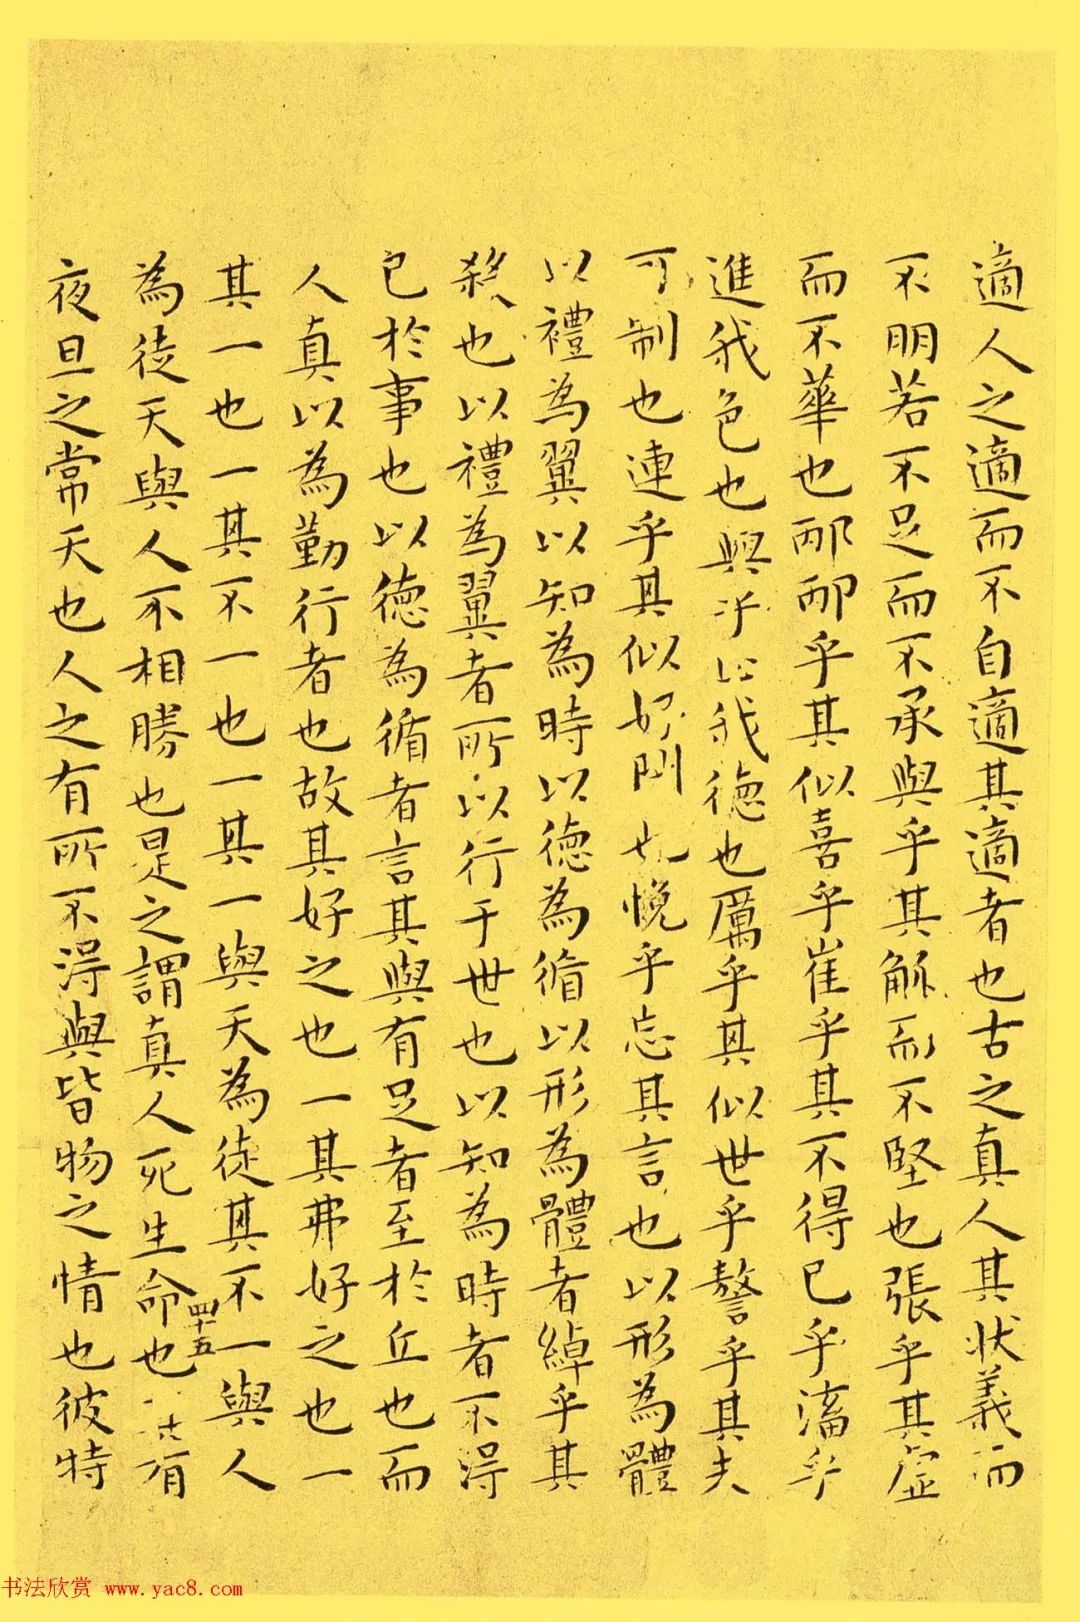 適人之適而不自適其適者也古之真人其狀義而
不朋若不足而不承與乎其觚而不堅也張乎其虛
而不華也邴邴乎其似喜乎崔乎其不得已乎滀乎
進我色也與乎止我德也厲乎其似世乎謷乎其夫
可制也連乎其似好閉也悗乎忘其言也以形為體
以禮為翼以知為時以德為循以形為體者綽乎其
殺也以禮為翼者所以行于世也以知為時者不得
已於事也以德為循者言其與有足者至於丘也而
人真以為勤行者也故其好之也一其弗好之也一
其一也一其不一也一其一與天為徒其不一與人
為徒天與人不相勝也是之謂真人死生命也其有
夜旦之常天也人之有所不得與皆物之情也彼特
四十五
书法欣赏 www.yac8.com